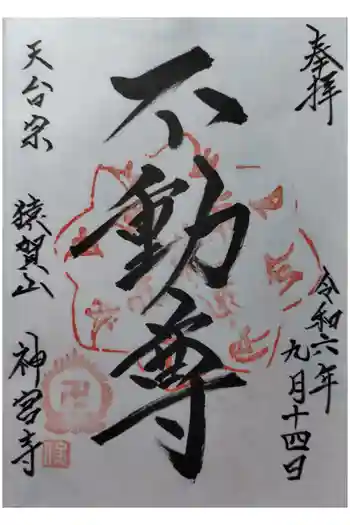 奉拝
令和六年
九月十四日
不動尊
天台宗
猿賀山
神宮寺